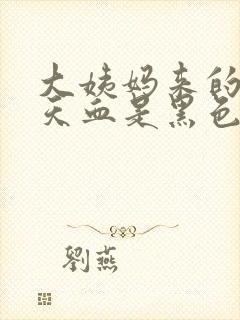 大姨妈来的
天血是黑色
劉燕